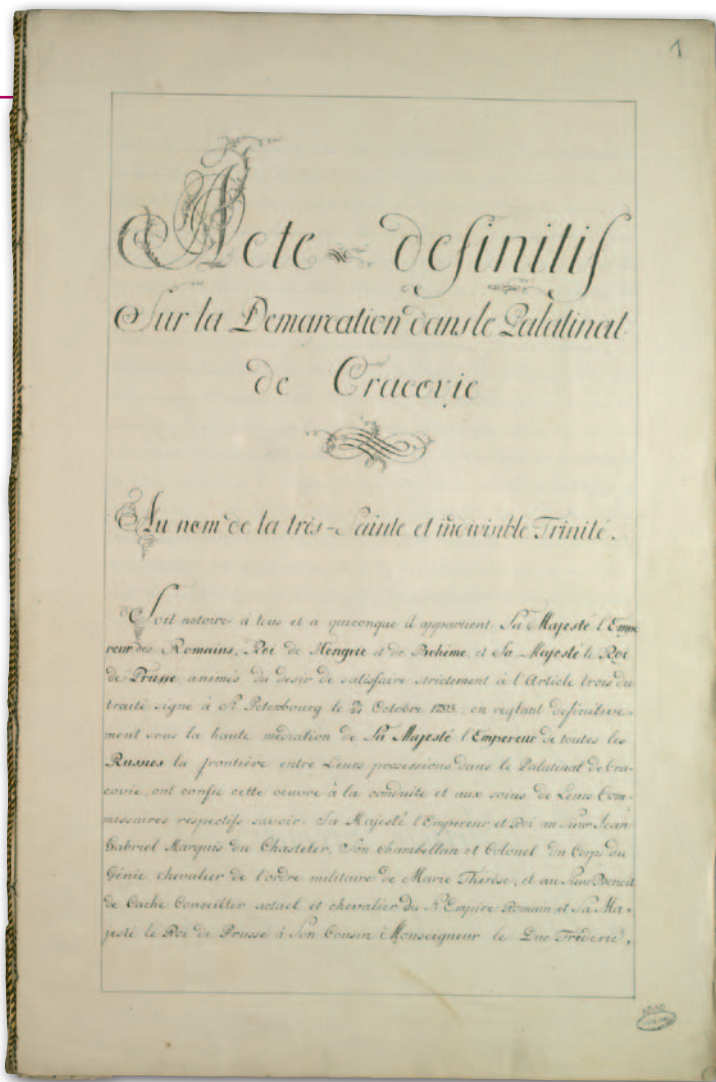 1
Acte definitif
Sur la Demarcation dans le Palatinat
de Cracovie
Au nom de la très-Sainte et indivisible Trinité.
Soit notoire à tous et a quiconque il appartient. Sa Majesté l'Empe
reur des Romains, Roi de Hongrie et de Bohême, et Sa Majesté le Roi
de Prusse animés du desir de satisfaire strictement à l'Article trois du
traité signé à St Petersbourg le Octobre 1795. en reglant definitive-
ment sous la haute mediation de Sa Majesté l'Empereur de toutes les
Russies la frontière entre Leurs possessions dans le Palatinat de Cra-
covie, ont confie cette oeuvre à la conduite et aux soins de Leurs Com-
missaires respectifs savoir: Sa Majesté l'Empereur et Roi au Sieur Jean
Gabriel Marquis du Chasteler, Son Chambellan et Colonel du Corps du
Génie chevalier de l'ordre militaire de Marie Thérèse, et au Sieur Benoit
de Cache Conseiller actuel et chevalier du St Empire Romain et Sa Ma-
jesté le Roi de Prusse à Son Cousin Monseigneur le Duc Frédéric,